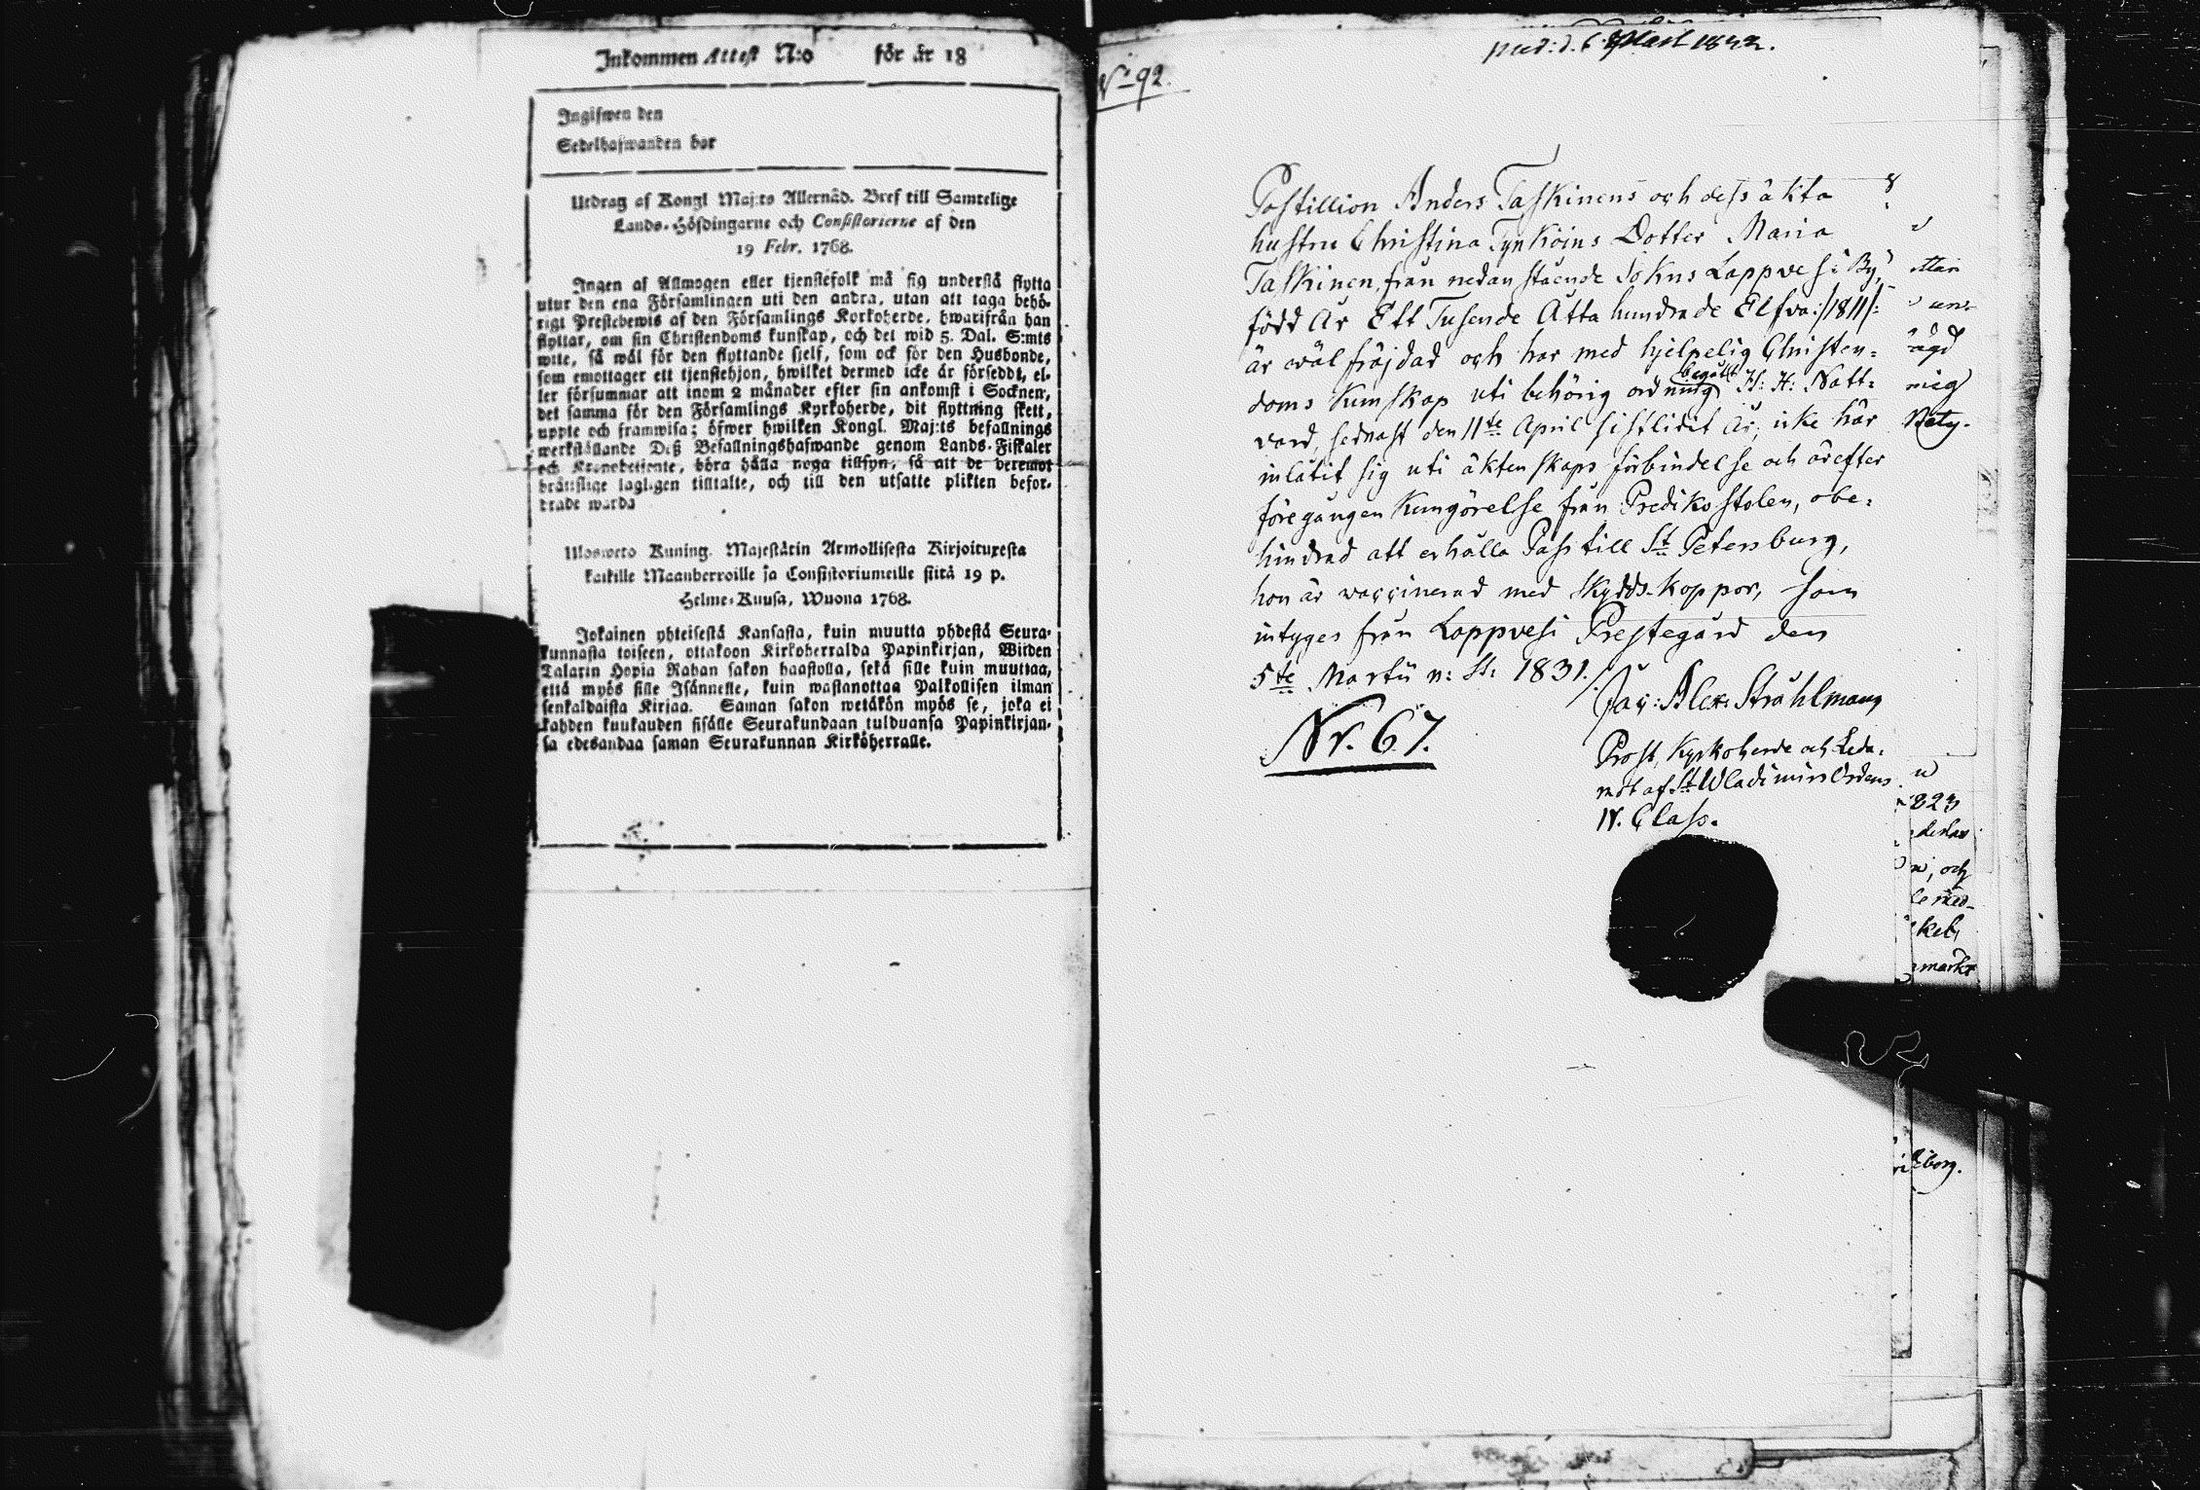 Inkommen Attest N:o för år 18
Ingifwen den
Sedelhafwanden bor
Utdrag af Kongl Maj:ts Allernåd. Bref till Samtelige
Lands-Höfdingarne och Consistorierne af den
19 Febr. 1768.
Ingen af Allmogen eller tjenstefolk må sig understå flytta
utur den ena Församlingen uti den andra, utan att taga behö-
rigt Prestebewis af den Församlings Kyrkoherde, hwarifrån han
flyttar, om sin Christendoms kunskap, och det wid 5. Dal. S:mts
wite, så wäl för den flyttande sjelf, som ock för den Husbonde,
som emottager ett tjenstehjon, hwilket dermed icke är försedt, el-
ler försummar att inom 2 månader efter sin ankomst i Socknen,
det samma för den Församlings Kyrkoherde, dit flyttning skett,
uppte och framwisa; öfwer hwilken Kongl. Maj:ts befallnings
werkställande Deß Befallningshafwande genom Lands-Fiskaler
och Kronobetjente, böra hålla noga tillsyn, så att de deremot
bråttslige lagligen tilltalte, och till den utsatte plikten befor-
drade warda
Ulosweto Kuning. Majestätin Armollisesta Kirjoituxesta
kaikille Maanherroille ja Consistoriumeille siitä 19 p.
Helme-Kuusa, Wuona 1768.
Jokainen yhteisestä Kansasta, kuin muutta yhdestä Seura-
kunnasta toiseen, ottakoon Kirkoherralda Papinkirjan, Wiiden
Talarin Hopia Rahan sakon haastolla, sekä sille kuin muuttaa,
että myös sille Isännelle, kuin wastanottaa Palkollisen ilman
senkaldaista Kirjaa. Saman sakon wetäkön myös se, joka ei
kahden kuukauden sisälle Seurakundaan tulduansa Papinkirjan-
sa edesandaa saman Seurakunnan Kirköherralle.
N 92.
Postillion Anders Taskinens och dess äkta
hustru Christina Tynköins Dotter Maria
Taskinen, från nedanstående Sokns Lappvesi By,
född År Ett Tusende Åtta hundrade Elfva :/1811/:
är wäl fräjdad och har med hjelpelig Christen=
doms Kunskap uti behörig ordning begått H: H: Natt=
vard sednast den 11te April sistlidit År, icke här
inlåtit sig uti äktenskaps förbindelse och är efter
föregången Kungörelse från Predikostolen, obe=
hindrad att erhålla Pass till St Petersburg,
hon är vaccinerad med Skydds-koppor, som
intyges från Lappvesi Prestegård den
5te Martii n: St: 1831.
Jac: Alex: Stråhlmann
Prost, Kyrkoherde och Leda=
mot af St Wladimirs Ordens
IV. Class.
Nr. 67.